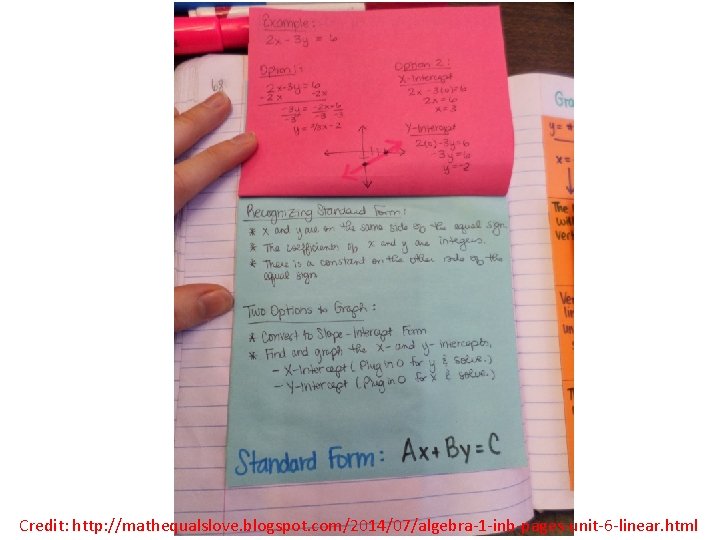 Example:
2x - 3y = 6
Option 1:
2x-3y=6
-2x -2x
-3y = -2x+6
-3 -3 -3
y = 2/3x-2
Option 2:
X-Intercept
2x - 3(0)=6
2x=6
x=3
Y-Intercept
2(0)-3y=6
-3y=6
y=-2
68
Recognizing Standard Form:
* x and y are on the same side of the equal sign.
* The coefficients of x and y are integers.
* There is a constant on the other side of the
equal sign
Two Options to Graph:
* Convert to Slope-Intercept Form
* Find and graph the x- and y-intercepts.
- X-Intercept (Plug in 0 for y & solve.)
- Y-Intercept (Plug in 0 for x & solve.)
Standard Form: Ax+By=C
Gra
y=
x=
The
will
vert
Ver
lin
un
T
Credit: http://mathequalslove.blogspot.com/2014/07/algebra-1-inb-pages-unit-6-linear.html